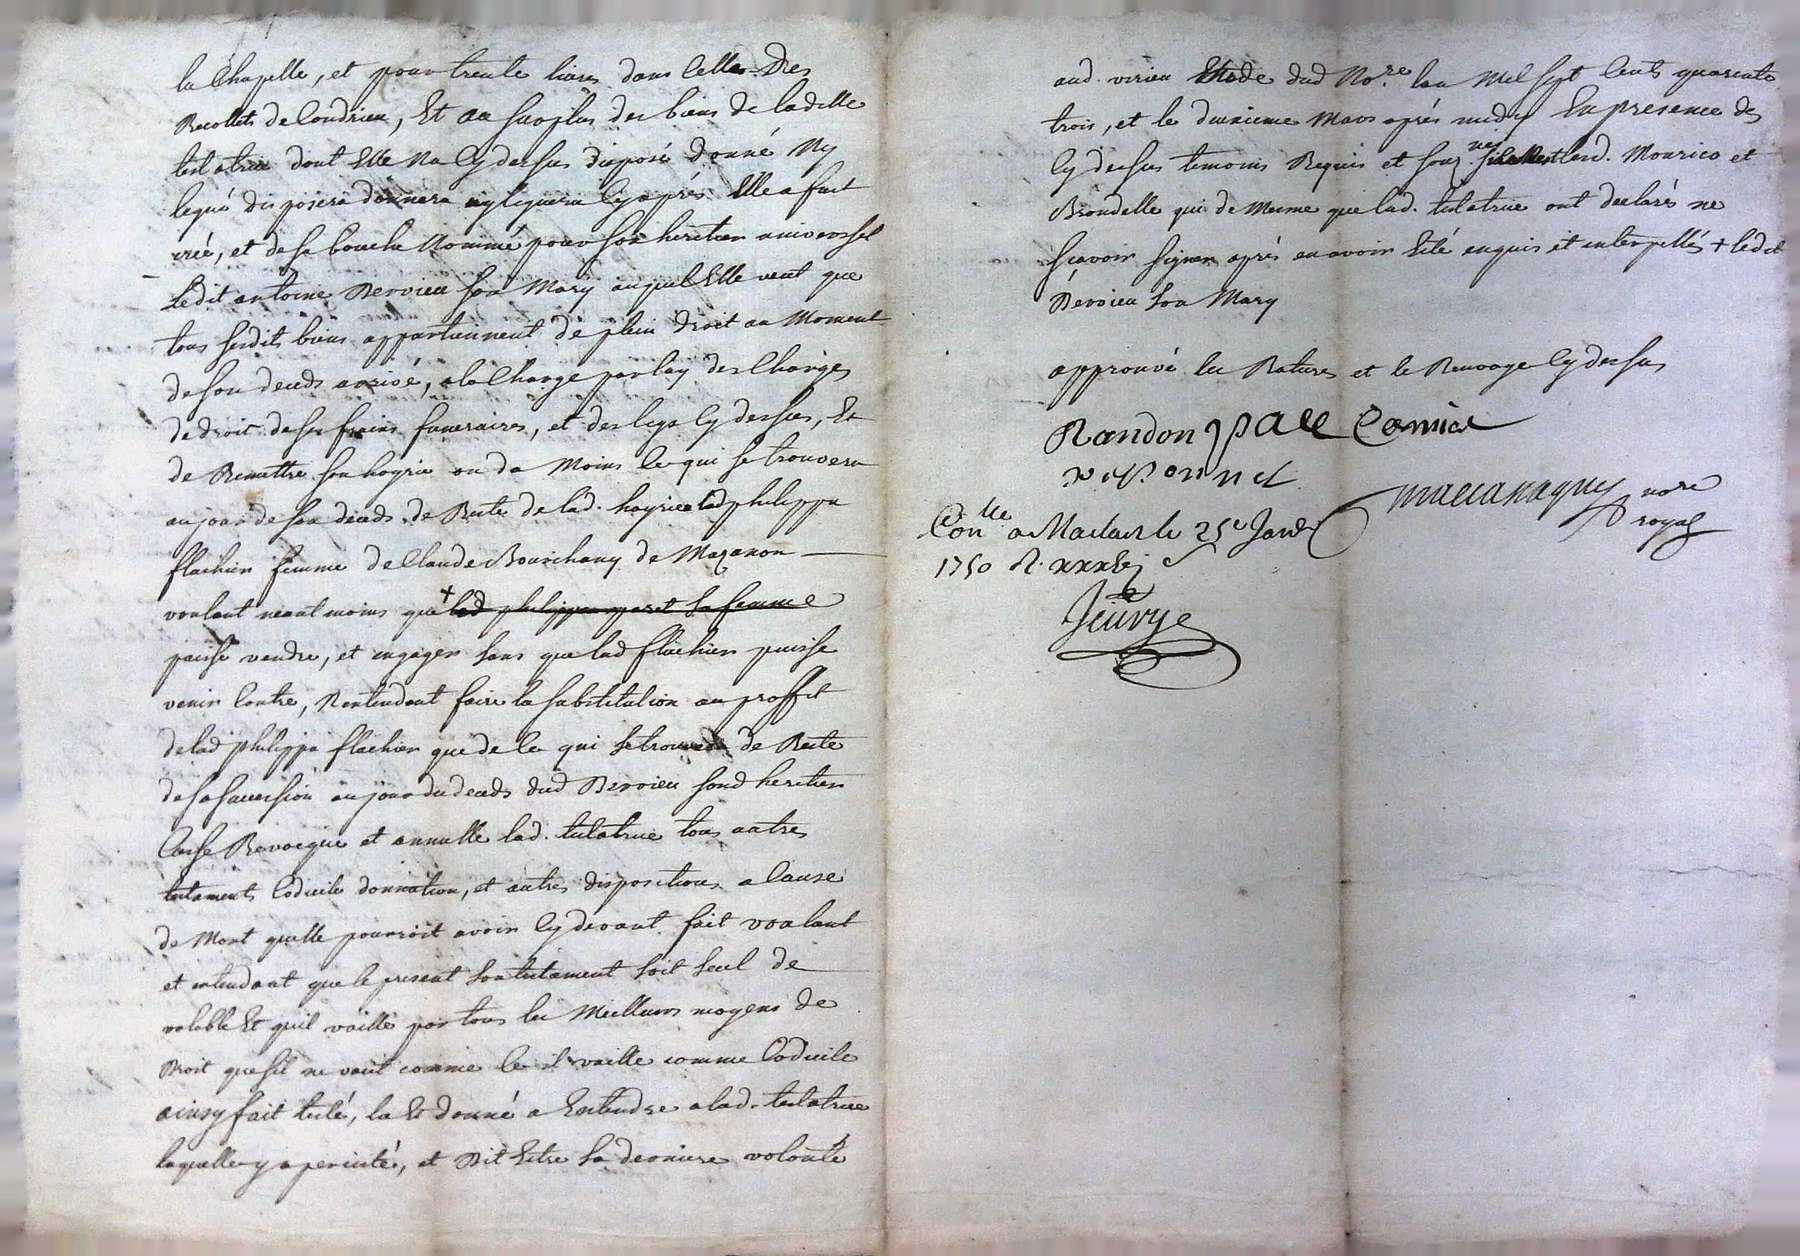 la Chapelle, et pour trente livres dans celles des
Recollets de Condrieu, Et au surplus des biens de ladille
testatrice dont Elle na cy dessus disposé donné Ny
legué disposera donnera ny leguera cy après Elle a fait
créé, et de sa bouche Nommé pour son heritier universel
Ledit antoine Dervieu son Mary auquel Elle veut que
tous sesdits biens appartiennent de plein droit au Moment
de son deceds arrivé, a la Charge par luy des Charges
de droit de ses frais funeraires, et des legs cy dessus, Et
de Remettre son hoyrie ou du Moins ce qui se trouvera
au jour de son deceds de Reste de lad. hoyrie a lad philippa
flachier femme de Claude Bourchany de Mazanon
voulant neantmoins que + lad philippa
puisse vendre, et engager sans que lad flachier puisse
venir Contre, Nentendant faire la substitution au proffit
de lad philippa flachier que de ce qui se trouvera de Reste
de sa succession au jour du deceds dud Dervieu sond heritier
Casse Revocque et annulle lad. testatrice tous autres
testaments Codicile donnation, et autres dispositions a Cause
de Mort quelle pourroit avoir cy devant fait voulant
et entendant que le present son testament soit seul de
valable Et quil vaille par tous les Meilleurs moyens de
Droit que sil ne vaut comme tel il vaille comme Codicile
ainsy fait testé, lu Et donné a Entendre a lad. testatrice
laquelle y a persisté, et Dit Estre sa derniere volonté
aud. virieu Etude dud No.re lan Mil sept Cents quarante
trois, et le deuxieme Mars après midy En presence des
cy dessus temoins Requis et Mourico et
Brondelle qui de Mesme que lad. testatrice ont declarés ne
sçavoir signer après en avoir Eté enquis et interpellés + ledit
Dervieu son Mary
approuvé les Ratures et le Renvoye cy dessus
Randon
no.re
royal
Con.lle a Maclas le 25e Janv.
1750